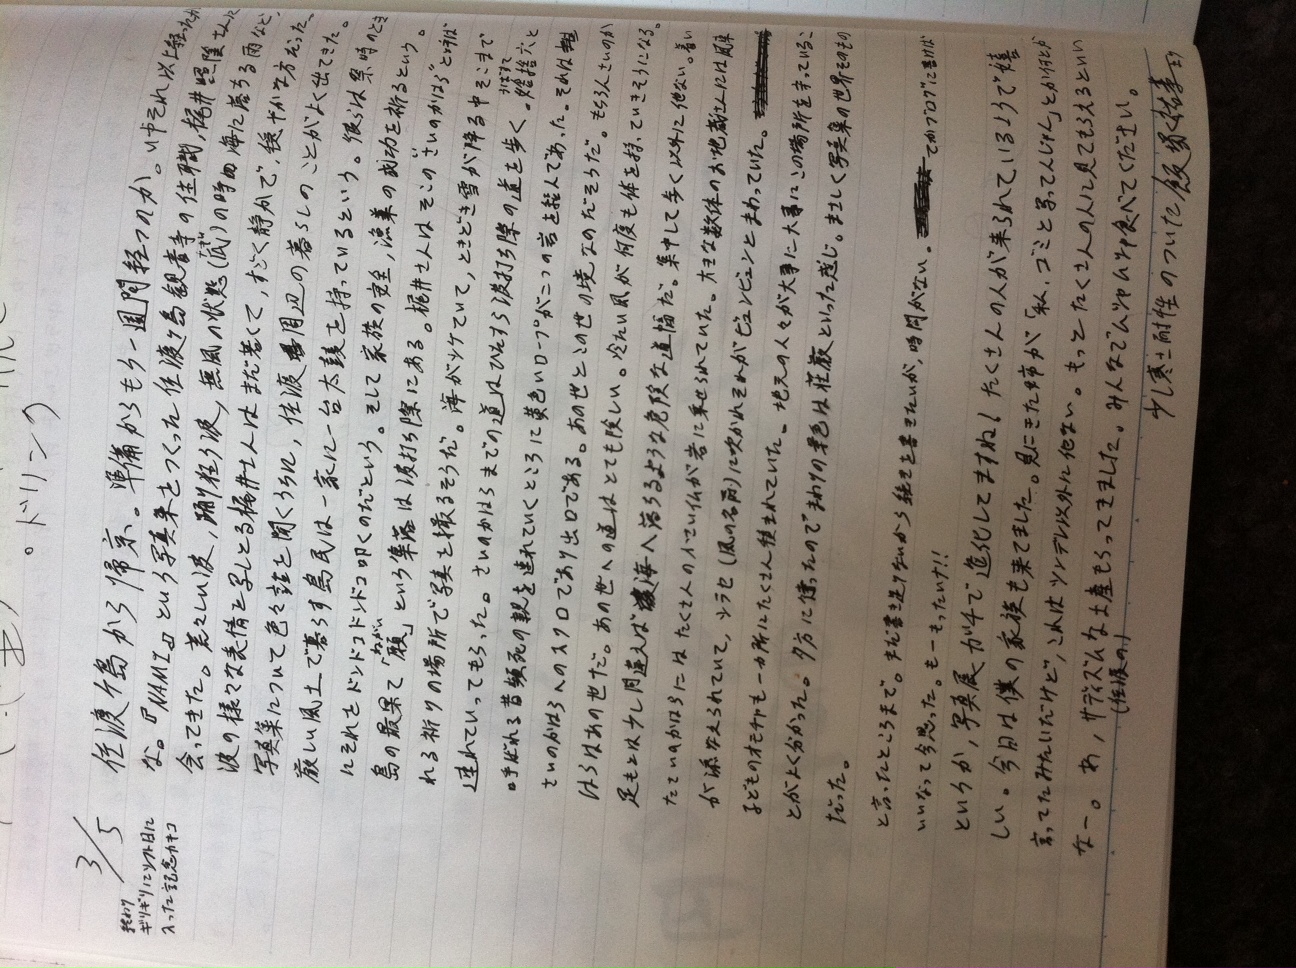 ドリンク
3/5
終わり
ギリギリに
入った記念カキコ
佐渡ヶ島から帰京。準備からもう一週間経つのか。いやそれ以上経ったか
な。『NAMI』という写真集をつくった佐渡ヶ島観音寺の住職、梶井照陰さんに
会ってきた。荒々しい波、踊り狂う波、無風の状態(凪)の時の海に落ちる雨など、
波の様々な表情を写しとる梶井さんはまだ若くて、すごく静かで、穏やかな方だった。
写真集について色々話を聞くうちに、佐渡周辺の暮らしのことがよく出てきた。
厳しい風土で暮らす島民は一家に一台太鼓を持っているという。彼らは祭の時のとき
にそれをドンドコドンドコ叩くのだという。そして家族の安全、漁業の成功を祈るという。
島の最果て「願」という集落は波打ち際にある。梶井さんはそこの"さいのかはら"と呼ば
れる祈りの場所で写真を撮るそうだ。海がシケていて、ときどき雪が降る中そこまで
連れていってもらった。さいのかはらまでの道はひたすら波打ち際の道を歩く。
呼ばれる昔瀕死の親を連れていくところに黄色いロープが二つの岩を結んであった。それは
さいのかはらへのスタロであり出口である。あの世とこの世の境なのだそうだ。もちろんさいのか
はらはあの世だ。あの世への道はとても険しい。冷たい風が何度も体を持っていきそうになる。
足もとは少し間違えば海へ落ちるような危険な道幅だ。集中して歩く以外に他ない。着い
たさいのかはらにはたくさんの小さい仏が岩に乗せられていた。大きな数体のお地蔵さんには風車
が添なえられていて、シラセ(風の名前)に吹かれそれがピュンピュンとまわっていた。
子どものオモチャも一カ所にたくさん積まれていた。地元の人々が大事に大事にこの場所を守っているこ
とがよく分かった。夕方に
だった。
と言ったところまで。まだ書き足りないから続きを書きたいが、時間がない。てかブログに書けば
いいなって今思った。もーもったいけ!!
というか、写真展がチで進化してますね!たくさんの人が来られているようで嬉
しい。今日は僕の家族も来てました。見にきた姉が「私、ゴミと写ってんじゃん」とか
言ってたみたいだけど、これはツンデレ以外に他ない。もっとたくさんの人に見てもらえるとい
なー。あ、サディズムなお土産もらってきました。みんなでムシャムシャ食べてください。
(佐渡の)
少し寒さ耐性のついた